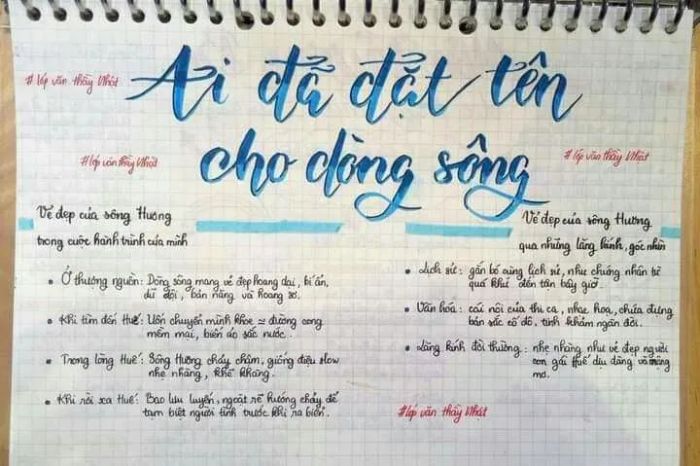 Ai đã đặt tên
cho dòng sông
#lớp văn thầy Nhật
#lớp văn thầy Nhật
#lớp văn thầy Nhật
Vẻ đẹp của sông Hương
trong cuộc hành trình của mình
• Ở thượng nguồn: Dòng sông mang vẻ đẹp hoang dại, bí ẩn,
dữ dội, bản năng và hoang sơ.
• Khi tìm đến Huế: Uốn chuyển mình khoe = đường cong
mềm mại, biến ảo sắc nước.
• Trong lòng Huế: Sông Hương chảy chậm, giống điệu slow
nhẹ nhàng, khẽ khàng.
• Khi rời xa Huế: Bao lưu luyến, ngoặt rẽ hướng chảy để
tạm biệt người tình trước khi ra biển.
Vẻ đẹp của sông Hương
qua những lăng kính, góc nhìn
• Lịch sử: gắn bó cùng lịch sử, như chứng nhân từ
quá khứ đến tận bây giờ.
• Văn hóa: cái nôi của thi ca, nhạc họa, chứa đựng
bản sắc cố đô, tính khảm ngàn đời.
• Lăng kính đời thường: nhẹ nhàng như vẻ đẹp người
con gái Huế dịu dàng và mộng
mơ.
#lớp văn thầy Nhật